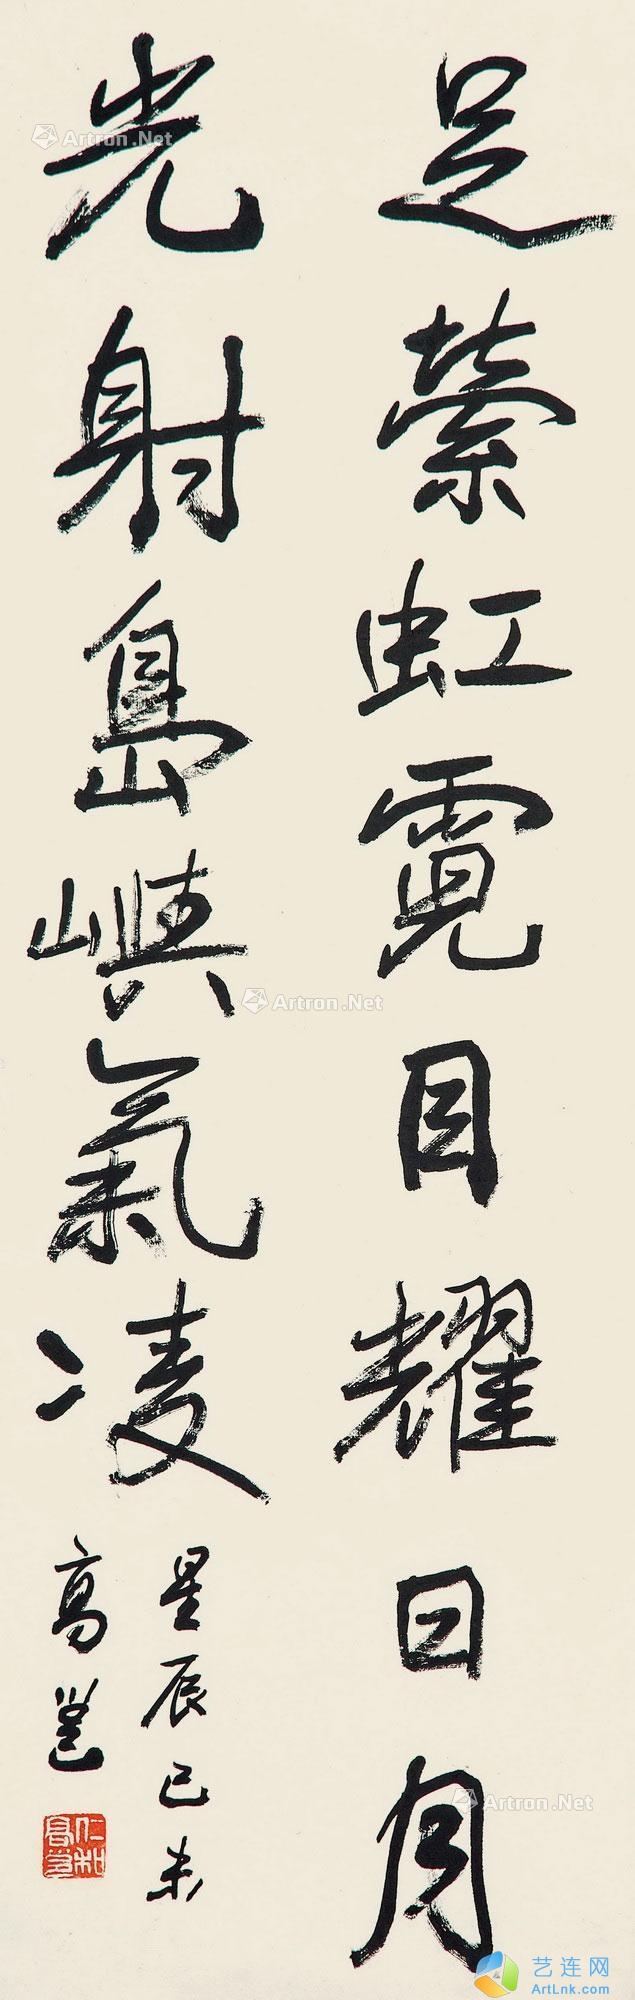 足萦虹霓目耀日月
光射島嶼氣凌
星辰己未
高邕
仁和高邕
Artron.Net
Artron.Net
Artron.Net
艺连网
ArtLink.com